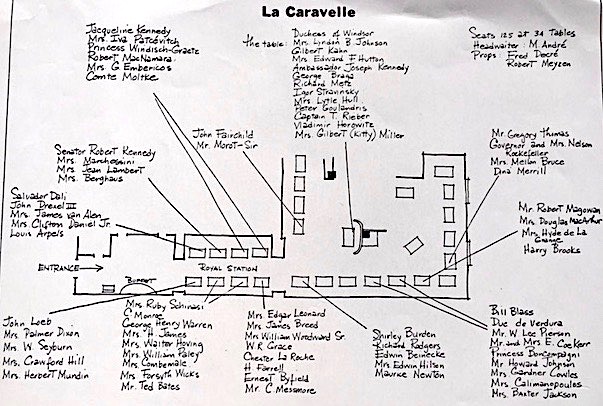 La Caravelle
Jacqueline Kennedy
Mrs. Iva Patcévitch
Princess Windisch-Graetz
Robert MacNamara
Mrs. G. Embericos
Comte Moltke
the table:
Duchess of Windsor
Mrs. Lyndon B. Johnson
Gilbert Kahn
Mrs Edward F Hutton
Ambassador Joseph Kennedy
George Braga
Richard Metz
Igor Stravinsky
Mrs Lytle Hull
Peter Goulandris
Captain T. Rieber
Vladimir Horowitz
Mrs. Gilbert (Kitty) Miller
Seats 125 at 34 Tables
Headwaiter: M. André
Props: Fred Decré
Robert Meyzen
John Fairchild
Mr. Morot-Sir
Senator Robert Kennedy
Mrs. Marchessini
Mrs. Jean Lambert
Mrs. Berghaus
Mr. Gregory Thomas
Governor and Mrs. Nelson
Rockefeller
Mrs. Meilon Bruce
Dina Merrill
Salvador Dali
John Drexel III
Mrs. James van Alen
Mrs. Clifton Daniel Jr.
Louis Arpels
Mr. Robert Magowan
Mrs. Douglas MacArthur
Mrs. Hyde de La
Grange
Harry Brooks
ENTRANCE
ROYAL STATION
BUFFET
John Loeb
Mrs. Palmer Dixon
Mrs. W. Seyburn
Mrs. Crawford Hill
Mrs. Herbert Mundin
Mrs. Ruby Schinasi
C Monroe
George Henry Warren
Mrs. "H. James
Mrs. Walter Hoving
Mrs. William Paley
Mrs. Combemale
Mrs. Forsyth Wicks
Mr. Ted Bates
Mrs. Edgar Leonard
Mrs. James Breed
Mrs William Woodward Sr.
W.R. Grace
Chester La Roche
H. Farrell
Ernest Byfield
Mr. C Messmore
Shirley Burden
Richard Rodgers
Edwin Beinecke
Mrs Edwin Hilson
Maurice Newton
Bill Blass
Duc de Verdura
Mr. W Lee Pierson
Mr. and Mrs. E. Coe Kerr
Princess Doncompagni
Mr. Howard Johnson
Mrs Gardner Cowles
Mrs. Calimanopoulos
Mrs. Baxter Jackson